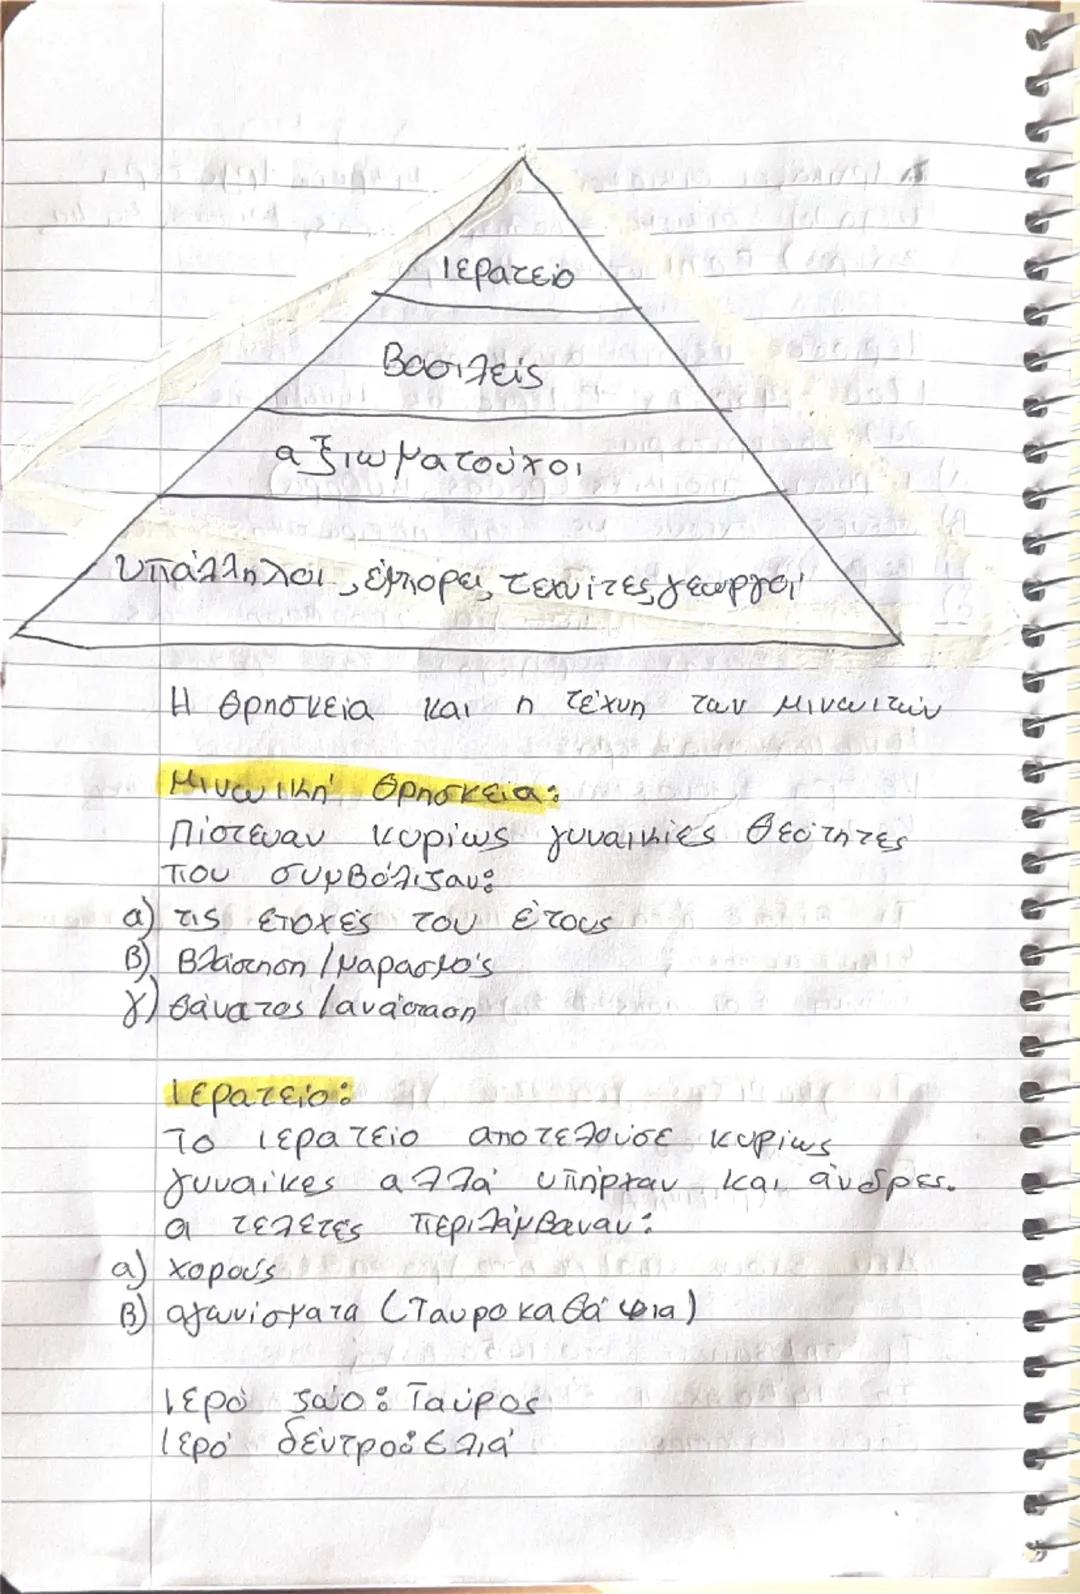 Ιερατείο
Βασιλείς
αξιωματούχοι
υπάλληλοι, έμποροι, τεχνίτες, γεωργοί
Η θρησκεία και η τέχνη των Μινωιτών
Μινωική θρησκεία:
Πίστευαν κυρίως γυναικίες θεότητες
που συμβόλιζαν:
α) τις εποχές του έτους
β) Βλάστηση / μαρασμός
γ) θάνατος / ανάσταση
Ιερατείο:
Το ιερατείο αποτελούσε κυρίως
γυναίκες αλλά υπήρχαν και άνδρες.
οι τελετές περιλάμβαναν:
α) χορούς
β) αγωνίσματα (Ταυροκαθάψια)
Ιερό ζώο: Ταύρος
Ιερό δέντρο: Ελιά